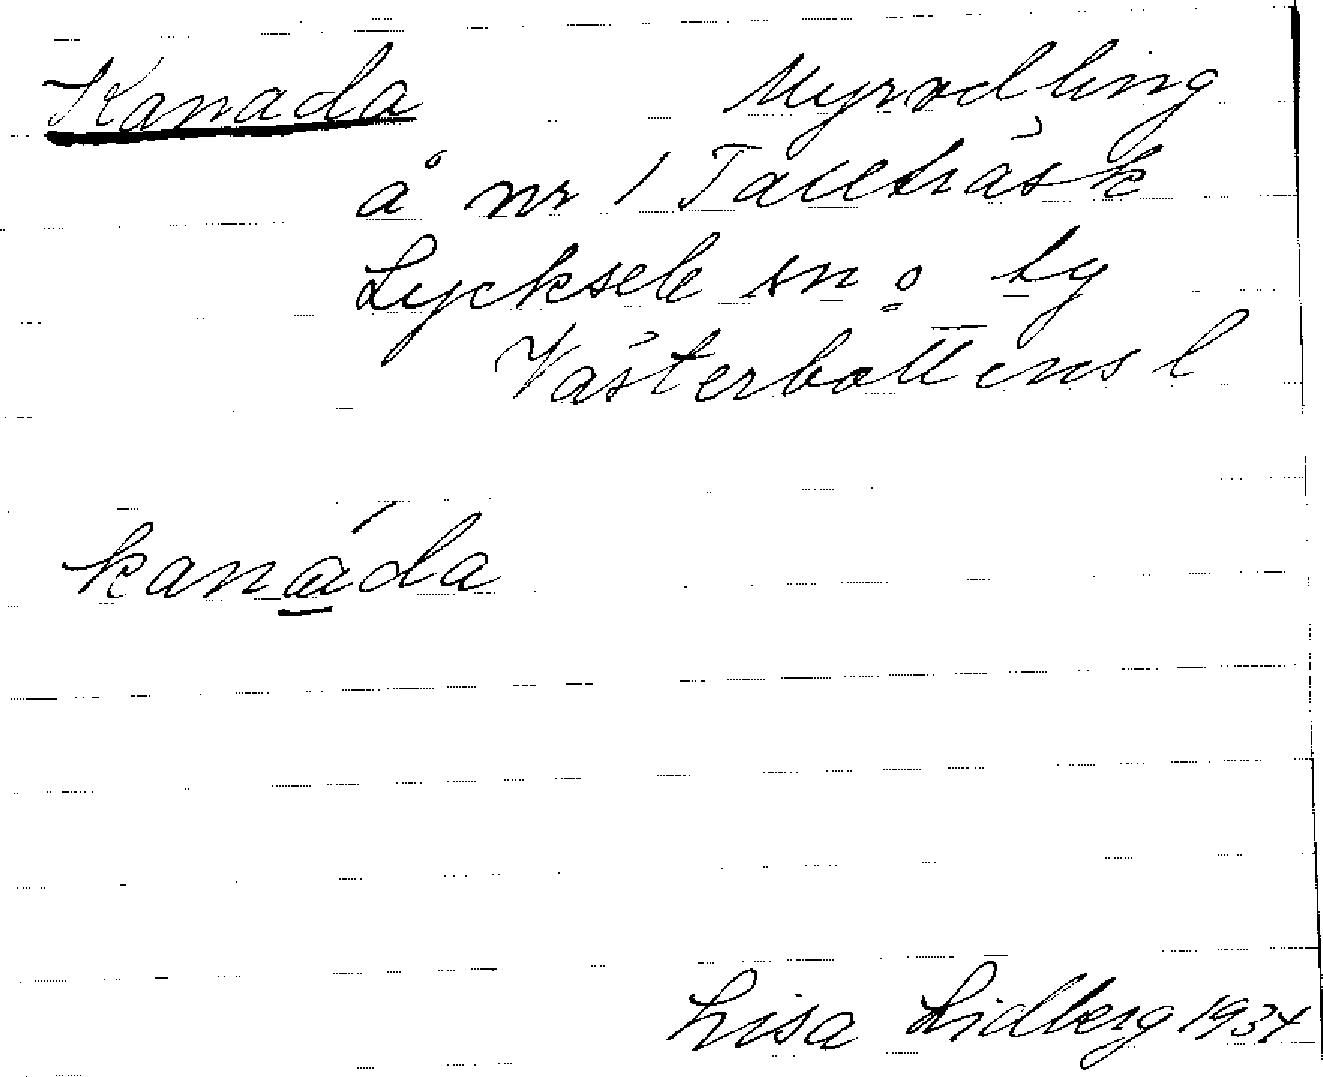 Kanada Myrodling
å nr 1 Tallträsk
Lycksele sn o by
Västerbottens l
kanáda
Lisa Lidberg 1934